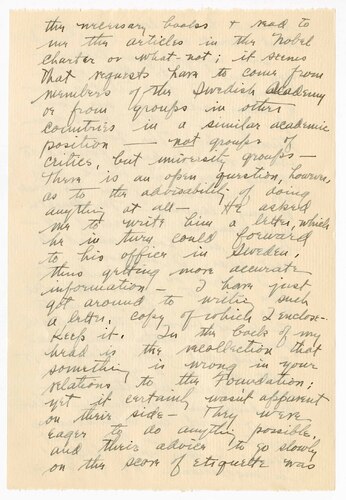 the necessary books & read to
me the articles in the Nobel
charter or what-not; it seems
that requests have to come from
members of the Swedish Academy
or from groups in other
countries in a similar academic
position — not groups of
critics, but university groups —
There is an open question, however,
as to the advisability of doing
anything at all — He asked
me to write him a letter, which
he in turn could forward
to his office in Sweden,
thus getting more accurate
information — I have just
got around to writing such
a letter, copy of which I enclose.
Keep it. In the back of my
head is the recollection that
something is wrong in your
relations to the Foundation;
yet it certainly wasn't apparent
on their side — They were
eager to do anything possible
and their advice to go slowly
on the score of etiquette was